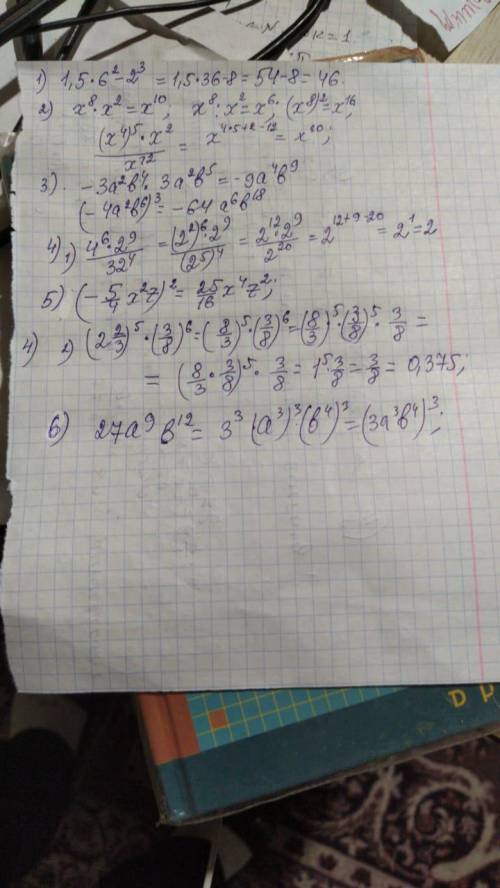 к = 1
1) 1,5·6² - 2³ = 1,5·36-8 = 54-8 = 46.
2) x⁸·x² = x¹⁰; x⁸:x² = x⁶; (x⁸)² = x¹⁶,
(x⁴)⁵·x² / x¹² = x⁴·⁵⁺²⁻¹² = x²⁰;
3) -3a²b⁴·3a²b⁵ = -9a⁴b⁹
(-4a²b⁶)³ = -64a⁶b¹⁸
4) 1) 4⁶·2⁹ / 32⁴ = (2²)⁶·2⁹ / (2⁵)⁴ = 2¹²·2⁹ / 2²⁰ = 2¹²⁺⁹⁻²⁰ = 2¹ = 2
5) (-5/4 x²z)² = 25/16 x⁴z²;
4) 2) (2 2/3)⁵·(3/8)⁶ = (8/3)⁵·(3/8)⁶ = (8/3)⁵·(3/8)⁵·3/8 =
= (8/3·3/8)⁵·3/8 = 1⁵·3/8 = 3/8 = 0,375;
6) 27a⁹b¹² = 3³·(a³)³·(b⁴)³ = (3a³b⁴)³;